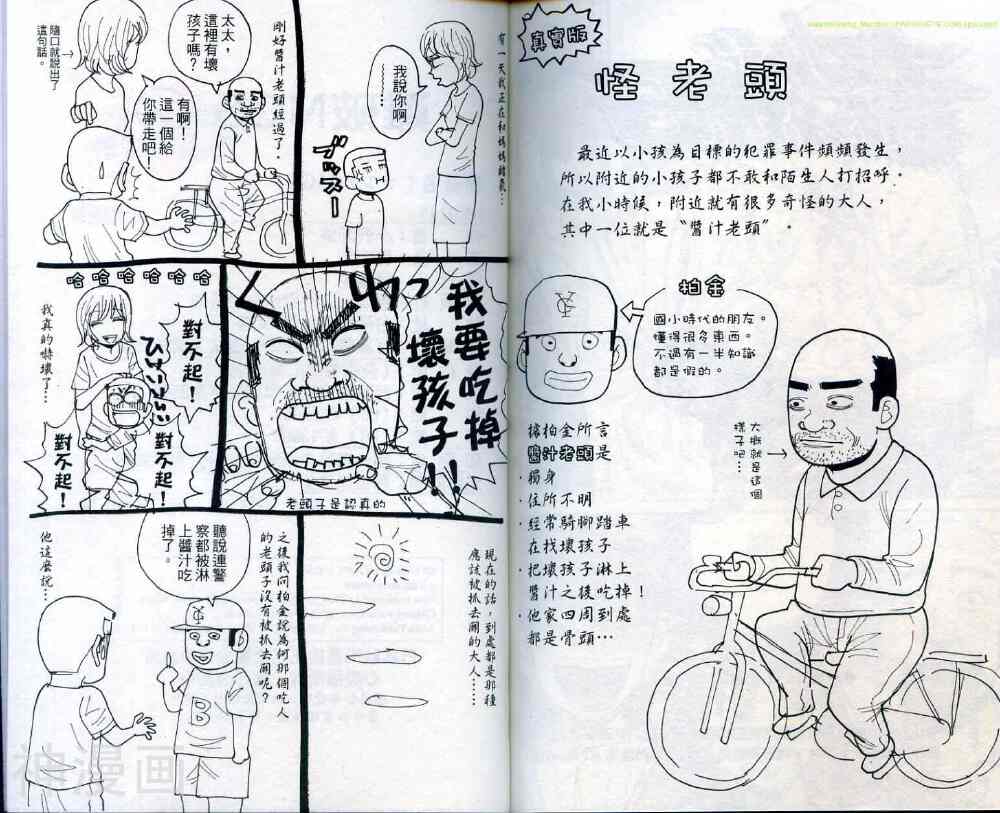 真實版
怪老頭
最近以小孩為目標的犯罪事件頻頻發生，
所以附近的小孩子都不敢和陌生人打招呼。
在我小時候，附近就有很多奇怪的大人，
其中一位就是“醬汁老頭”。
柏金
國小時代的朋友。
懂得很多東西。
不過有一半知識
都是假的。
YG
據柏金所言
醬汁老頭是
·獨身
·住所不明
·經常騎腳踏車
在找壞孩子
·把壞孩子淋上
醬汁之後吃掉！
·他家四周到處
都是骨頭…
大概就是這個
樣子吧…
有一天我正在和媽媽賭氣…
我說你啊
………
ブッスー
剛好醬汁老頭經過了。
太太，
這裡有壞
孩子嗎？
有啊！
這一個給
你帶走吧！
隨口就說出了
這句話。
我要吃掉
壞孩子!!
わっ
老頭子是認真的
哈哈哈哈哈哈
對不起！
對不起！
對不起！
ひぃぃぃぃぃ
我真的嚇壞了…
現在的話，到處都是那種
應該被抓去關的大人……
之後我問柏金說為何那個吃人
的老頭子沒有被抓去關呢？
聽說連警
察都被淋
上醬汁吃
掉了。
YG
B
他這麼說…
神漫画